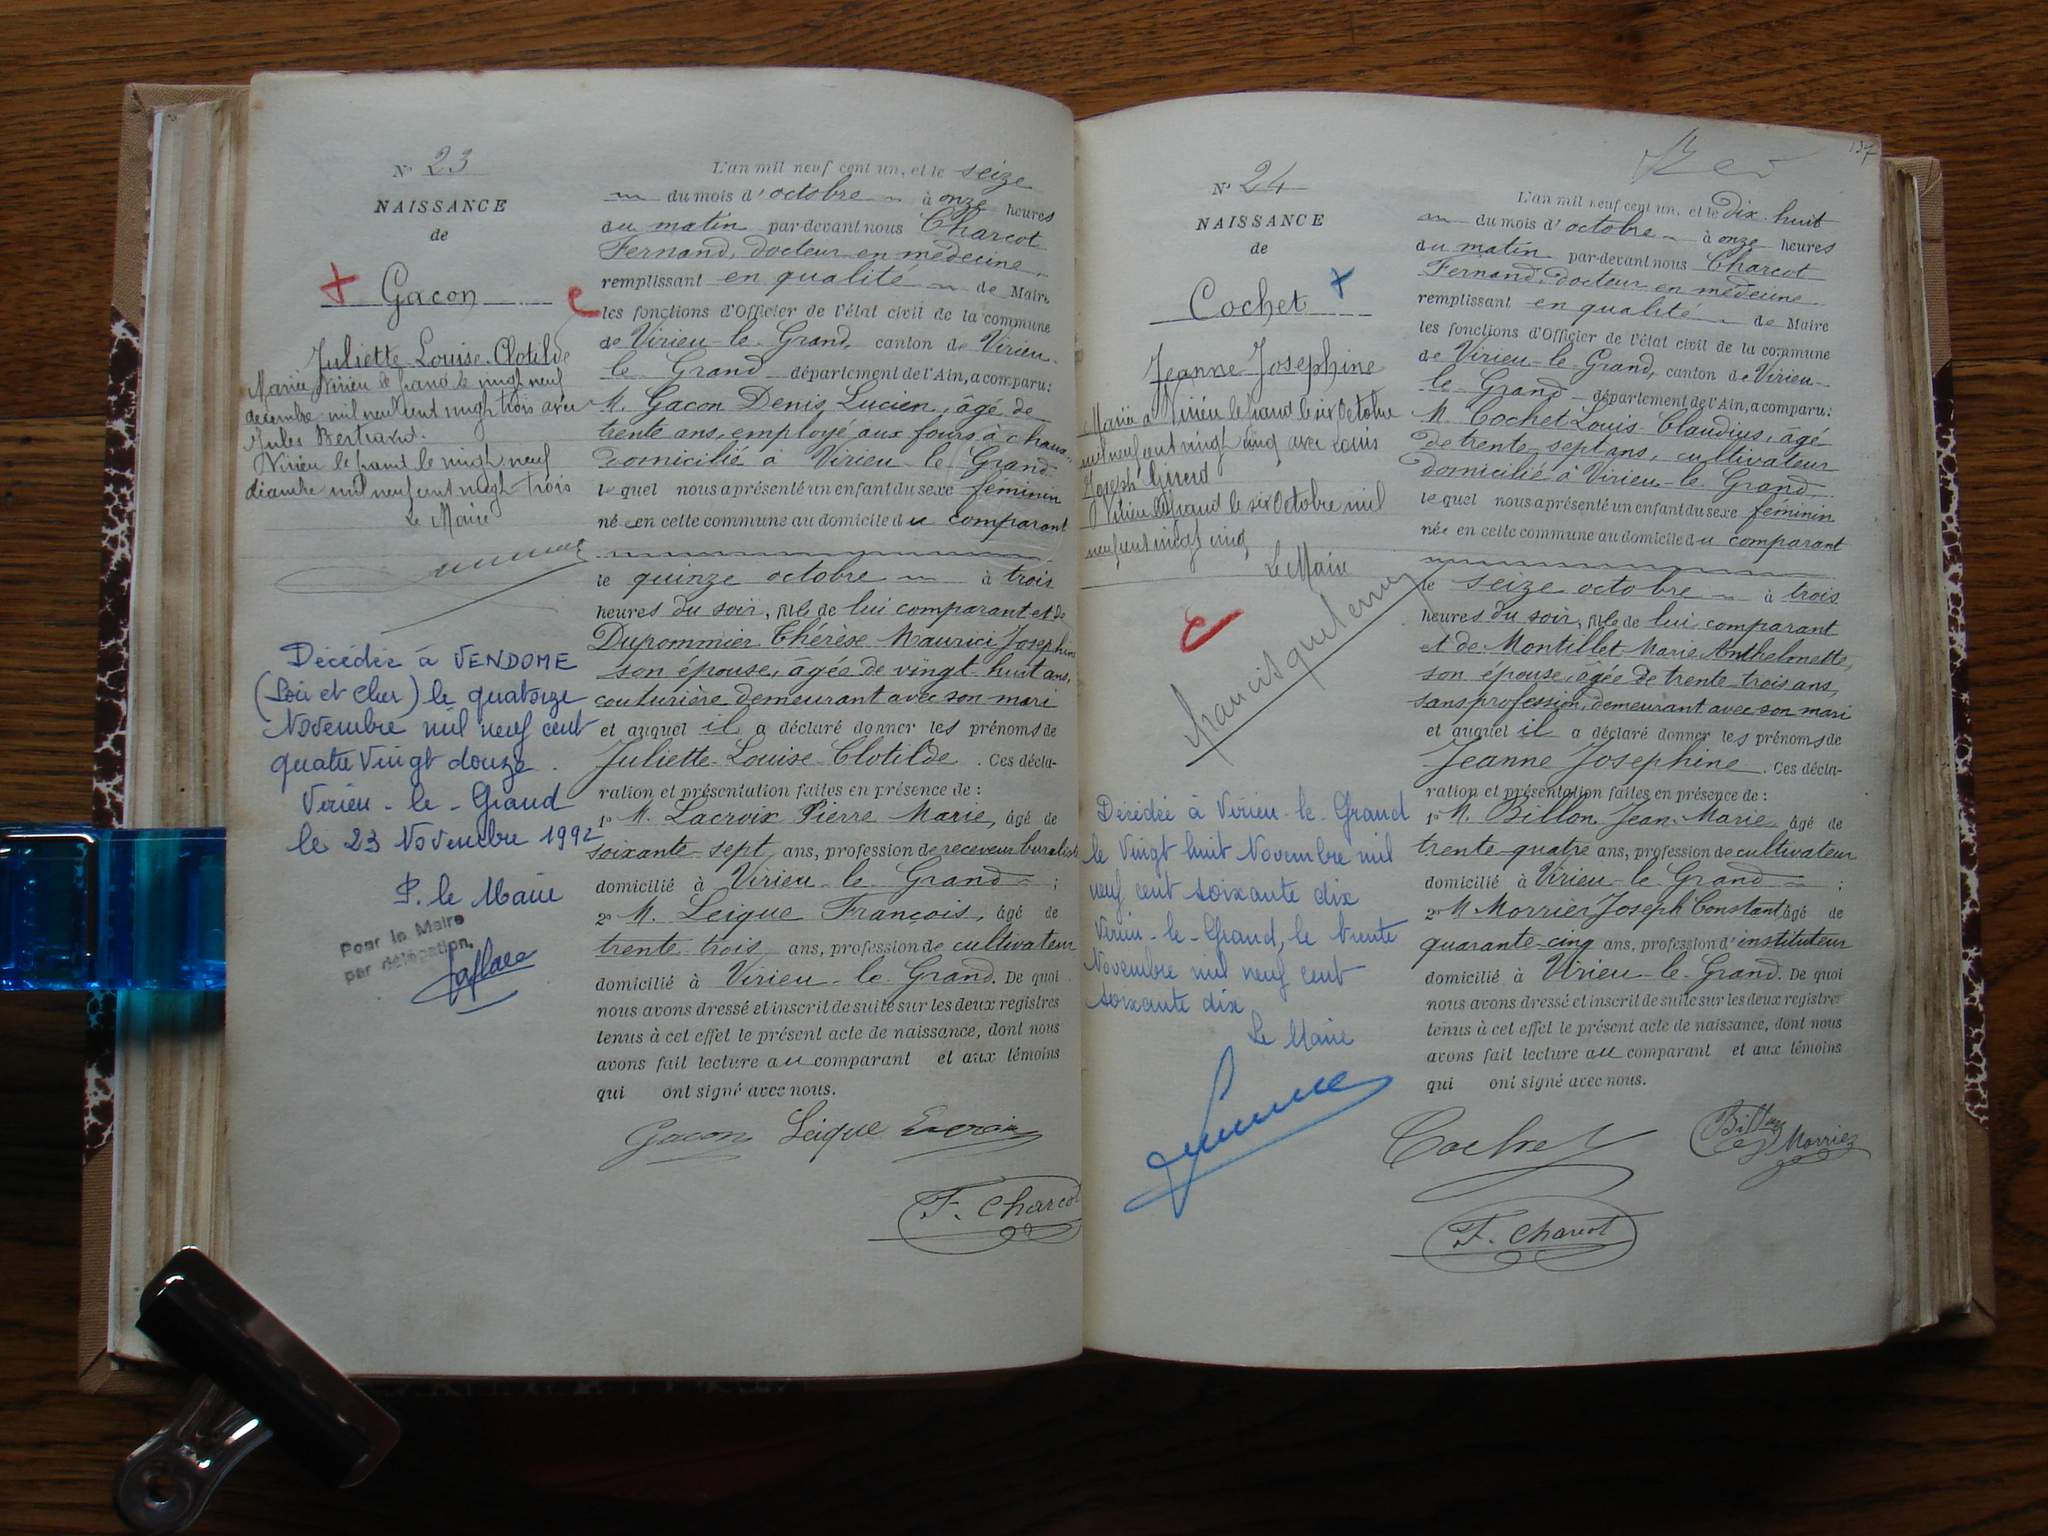 N° 23
NAISSANCE
de
Gacon
Juliette Louise Clotilde
Mariée Virieu le Grand le vingt neuf
décembre mil neuf cent vingt trois avec
Jules Bertrand.
Virieu le Grand le vingt neuf
décembre mil neuf cent vingt trois
Le Maire
Décédée à VENDOME
(Loir et Cher) le quatorze
Novembre mil neuf cent
quatre vingt douze.
Virieu-le-Grand
le 23 Novembre 1992
P. le Maire
Pour le Maire
par délégation,
L'an mil neuf cent un, et le seize
du mois d'octobre à onze heures
du matin par-devant nous Charcot
Fernand, docteur en médecine,
remplissant en qualité de Maire
les fonctions d'Officier de l'état civil de la commune
de Virieu-le-Grand, canton de Virieu-
le Grand département de l'Ain, a comparu:
M. Gacon Denis Lucien, âgé de
trente ans, employé aux fours à chaux,
domicilié à Virieu-le-Grand
lequel nous a présenté un enfant du sexe féminin
née en cette commune au domicile du comparant
le quinze octobre à trois
heures du soir, fille de lui comparant et de
Dupommier Thérèse Maurice Josephine
son épouse, âgée de vingt-huit ans,
couturière demeurant avec son mari
et auquel il a déclaré donner les prénoms de
Juliette Louise Clotilde. Ces décla-
ration et présentation faites en présence de:
1° M. Lacroix Pierre Marie, âgé de
soixante-sept ans, profession de receveur buraliste
domicilié à Virieu-le-Grand;
2° M. Leique François, âgé de
trente trois ans, profession de cultivateur
domicilié à Virieu-le-Grand. De quoi
nous avons dressé et inscrit de suite sur les deux registres
tenus à cet effet le présent acte de naissance, dont nous
avons fait lecture au comparant et aux témoins
qui ont signé avec nous.
Gacon Leique Lacroix
F. Charcot
137
N° 24
NAISSANCE
de
Cochet
Jeanne Josephine
Mariée à Virieu le Grand le six Octobre
mil neuf cent vingt cinq avec Louis
Joseph Girerd
Virieu le Grand le six Octobre mil
neuf cent vingt cinq
Le Maire
Décédée à Virieu-le-Grand
le vingt huit Novembre mil
neuf cent soixante dix
Virieu-le-Grand, le trente
Novembre mil neuf cent
soixante dix
Le Maire
L'an mil neuf cent un, et le dix-huit
du mois d'octobre à onze heures
du matin par-devant nous Charcot
Fernand, docteur en médecine
remplissant en qualité de Maire
les fonctions d'Officier de l'état civil de la commune
de Virieu-le-Grand, canton de Virieu-
le Grand département de l'Ain, a comparu:
M. Cochet Louis Claudius, âgé
de trente-sept ans, cultivateur
domicilié à Virieu-le-Grand
lequel nous a présenté un enfant du sexe féminin
née en cette commune au domicile du comparant
le seize octobre à trois
heures du soir, fille de lui comparant
et de Montillet Marie Anthelmette,
son épouse, âgée de trente-trois ans,
sans profession, demeurant avec son mari
et auquel il a déclaré donner les prénoms de
Jeanne Josephine. Ces décla-
ration et présentation faites en présence de:
1° M. Billon Jean-Marie âgé de
trente-quatre ans, profession de cultivateur
domicilié à Virieu-le-Grand;
2° M Morrier Joseph Constant âgé de
quarante-cinq ans, profession d'instituteur
domicilié à Virieu-le-Grand. De quoi
nous avons dressé et inscrit de suite sur les deux registres
tenus à cet effet le présent acte de naissance, dont nous
avons fait lecture au comparant et aux témoins
qui ont signé avec nous.
Cochet Billon Morrier
F. Charcot